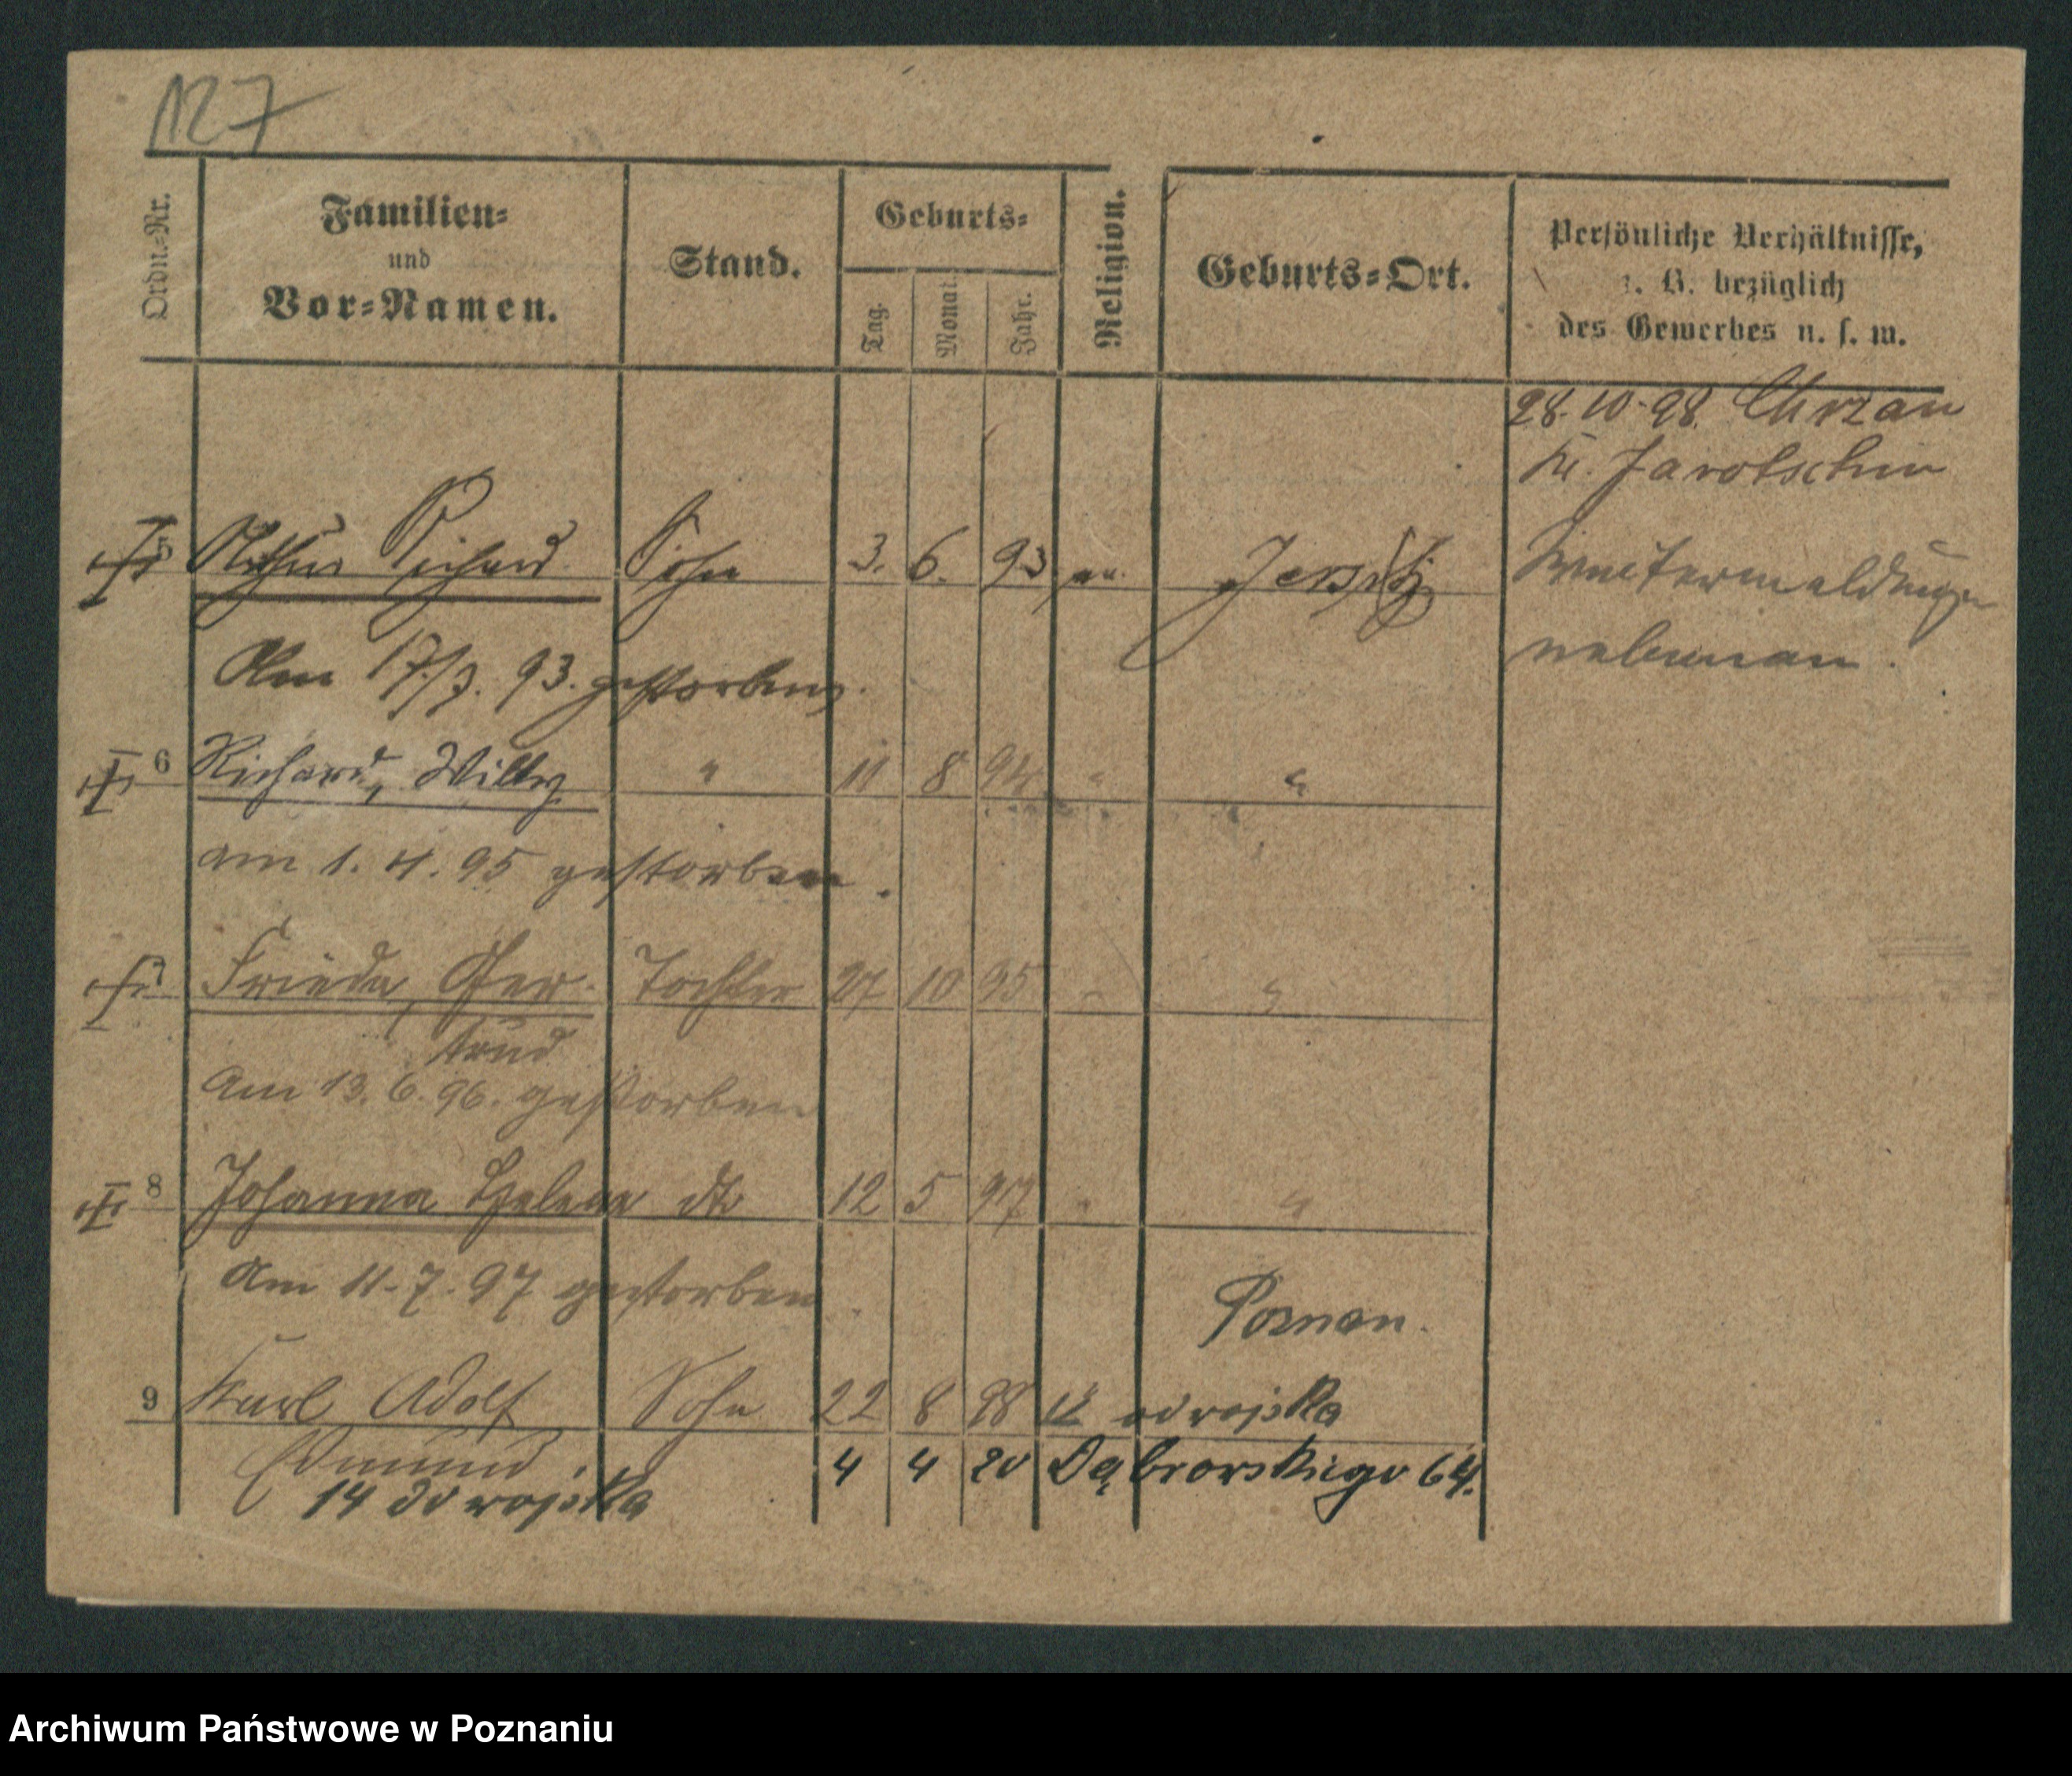 127
Ordn.=Nr.
Familien=
und
Vor=Namen.
Stand.
Geburts=
Tag.
Monat.
Jahr.
Religion.
Geburts=Ort.
Persönliche Verhältnisse,
z. B. bezüglich
des Gewerbes u. s. w.
28.10.98. Chrzan
Kr. Jarotschin
5 Arthur Richard Sohn 3. 6. 93 ev. Jersitz
Am 17/7. 93. gestorben.
Weitermeldungen
nebenan.
6 Richard, Willy " 11 8 94 " "
am 1. 4. 95 gestorben.
7 Frieda, Ger- Tochter 27 10 95 " "
trud
Am 13. 6. 96. gestorben
8 Johanna Helene dto 12 5 97 " "
Am 11. 7. 97 gestorben
Poznan.
9 Karl Adolf Sohn 22 8 98 od wojska
Edmund.
4 4 20 Dąbrowskiego 64.
14 do wojska
Archiwum Państwowe w Poznaniu